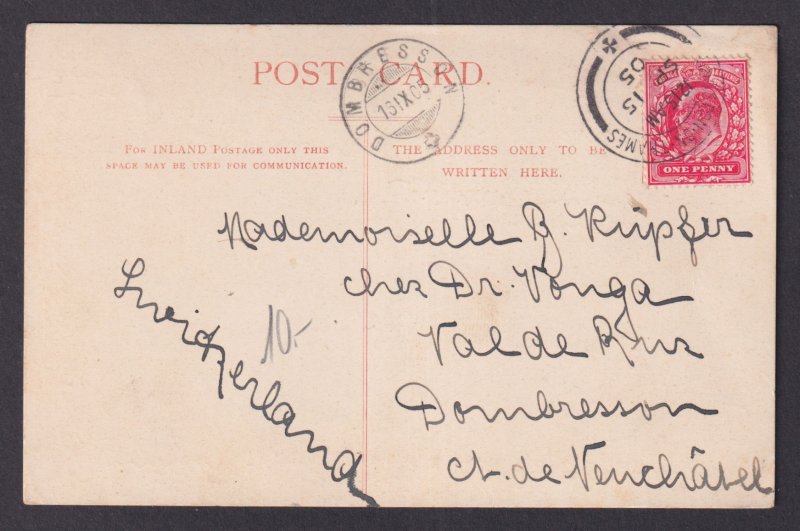 POST CARD.
DOMBRESSON
16 IX 05
SP 15
05
AMES
ONE PENNY
FOR INLAND POSTAGE ONLY THIS
SPACE MAY BE USED FOR COMMUNICATION.
THE ADDRESS ONLY TO BE
WRITTEN HERE.
Mademoiselle B. Küpfer
chez Dr. Vonga
Val de Ruz
Dombresson
ct. de Neuchâtel
Switzerland
10.-